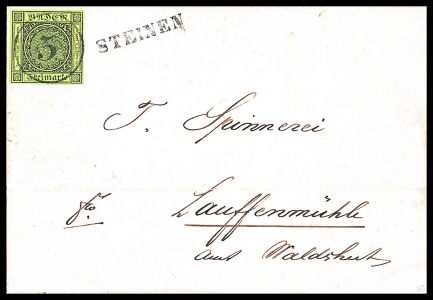 BADEN
3
Freimarke
STEINEN
T. Spinnerei
fro
Lauffenmühle
Amt Waldshut